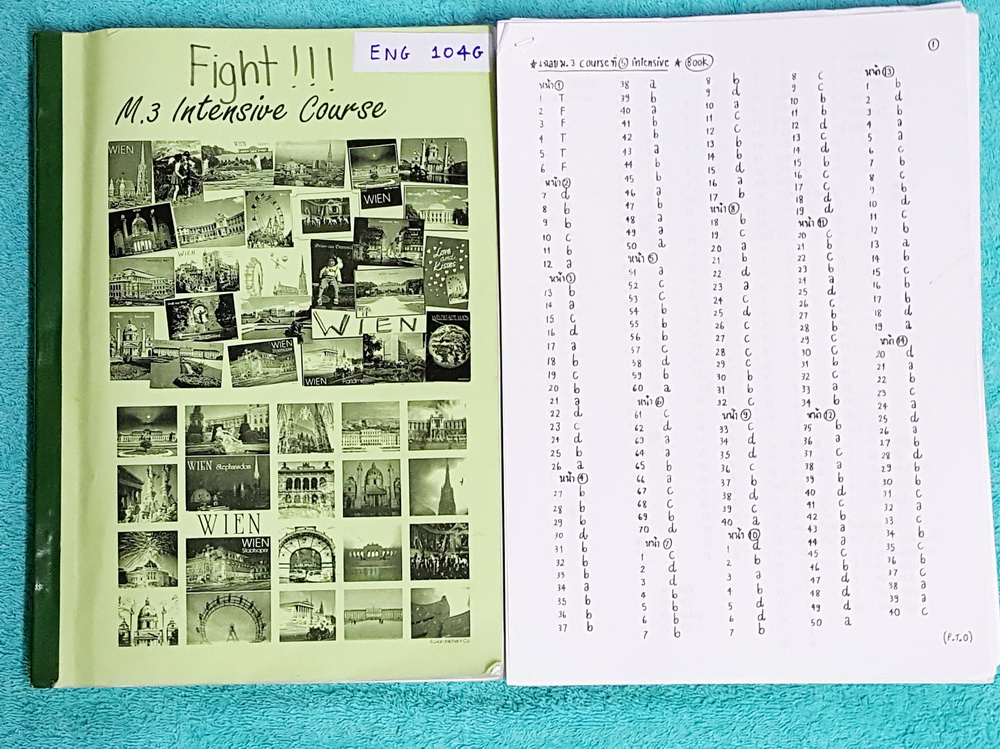 Fight !!!
ENG 104G
M.3 Intensive Course
WIEN
WIEN
WIEN
WIEN
WIEN
WIEN
WIEN
WIEN
WIEN
Staatsoper
①
★ เฉลย ม.3 Course ที่ ⑤ intensive ★ Book
หน้า ①
1 T
2 F
3 F
4 T
5 T
6 F
หน้า ②
7 d
8 b
9 b
10 c
11 b
12 a
หน้า ③
13 b
14 a
15 c
16 d
17 a
18 b
19 c
20 b
21 a
22 d
23 c
24 d
25 b
26 a
หน้า ④
27 b
28 b
29 b
30 d
31 b
32 b
33 b
34 a
35 b
36 b
37 b
38 a
39 b
40 a
41 b
42 b
43 a
44 b
45 b
46 a
47 b
48 a
49 a
50 a
หน้า ⑤
51 a
52 c
53 c
54 b
55 b
56 b
57 c
58 d
59 b
60 a
หน้า ⑥
61 c
62 d
63 a
64 a
65 b
66 a
67 c
68 c
69 b
70 d
หน้า ⑦
1 c
2 d
3 d
4 b
5 b
6 b
7 b
8 b
9 d
10 a
11 c
12 c
13 b
14 b
15 d
16 a
17 b
หน้า ⑧
18 b
19 c
20 a
21 b
22 d
23 a
24 c
25 d
26 c
27 c
28 c
29 c
30 b
31 b
32 c
หน้า ⑨
33 c
34 d
35 d
36 c
37 b
38 d
39 c
40 a
หน้า ⑩
1 d
2 b
3 a
4 b
5 d
6 d
7 b
8 c
9 c
10 b
11 b
12 d
13 c
14 d
15 b
16 c
17 c
18 d
19 d
หน้า ⑪
20 c
21 b
22 c
23 b
24 a
25 d
26 c
27 b
28 b
29 c
30 c
31 b
32 c
33 a
34 b
หน้า ⑫
35 b
36 a
37 c
38 a
39 b
40 d
41 c
42 b
43 a
44 a
45 c
46 b
47 d
48 d
49 d
50 a
หน้า ⑬
1 b
2 d
3 b
4 a
5 a
6 c
7 b
8 c
9 b
10 d
11 c
12 b
13 a
14 b
15 c
16 b
17 b
18 b
19 a
หน้า ⑭
20 d
21 a
22 b
23 c
24 a
25 d
26 a
27 b
28 d
29 b
30 b
31 c
32 a
33 c
34 b
35 c
36 b
37 c
38 a
39 a
40 c
(P.T.O)